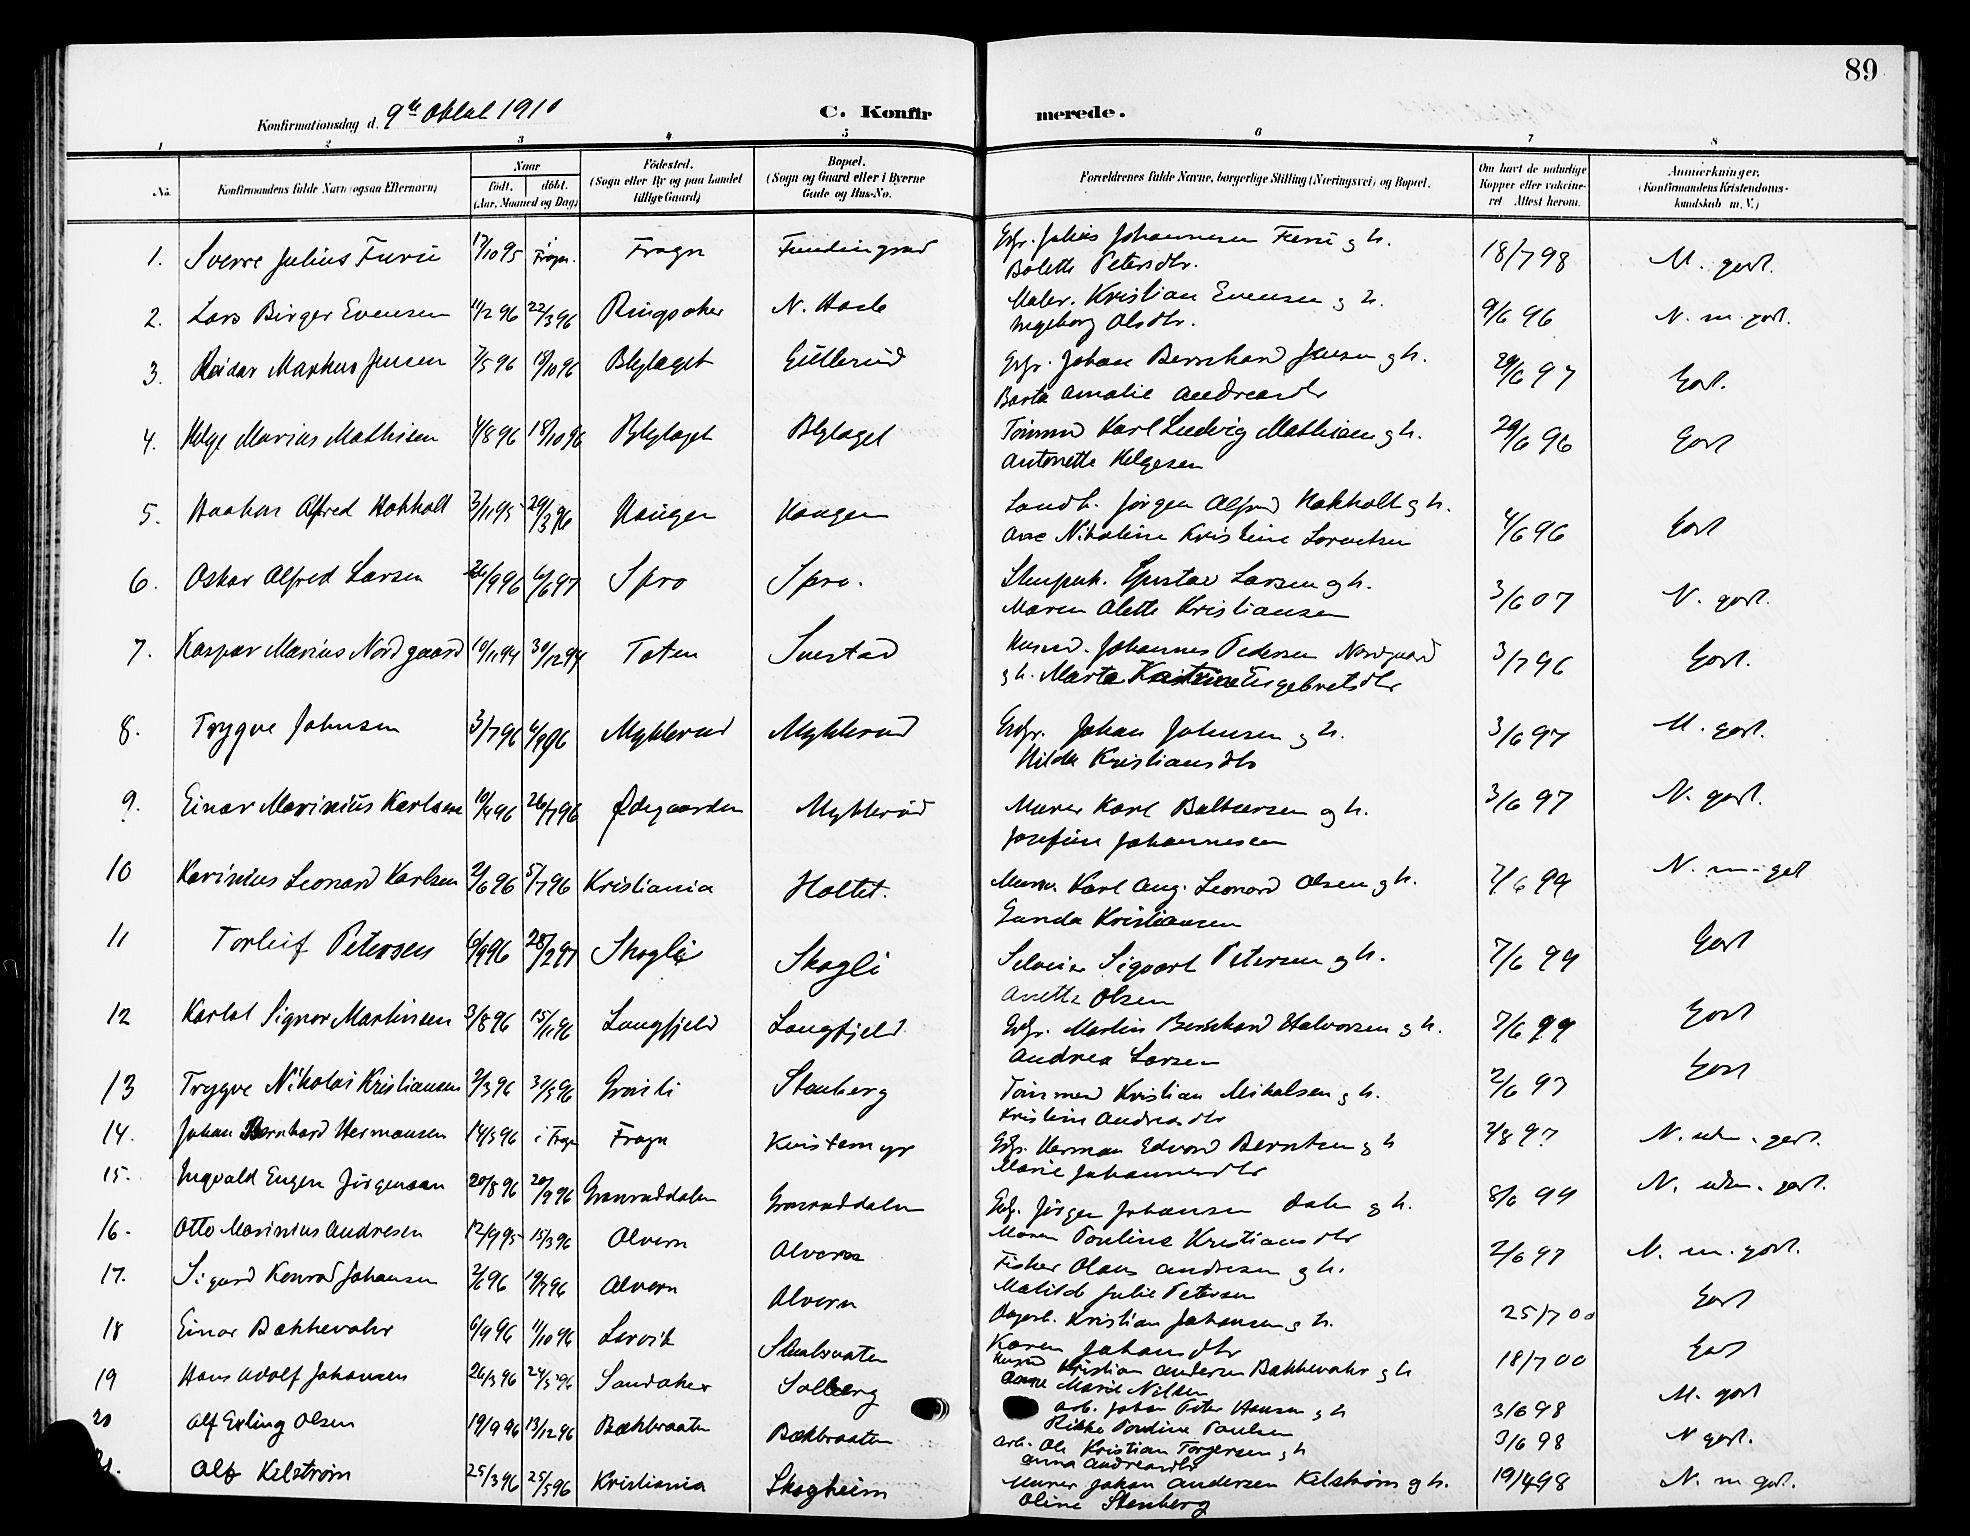 89
Konfirmationsdag d. 9de Oktbl 1910
C. Konfirmerede.
1 2 3 4 5 6 7 8
No. Konfirmandens fulde Navn (ogsaa Efternavn). Naar født. døbt. (Aar, Maaned og Dag) Fødested. (Sogn eller By og paa Landet tillige Gaard) Bopæl. (Sogn og Gaard eller i Byerne Gade og Hus-No. Forældrenes fulde Navne, borgerlige Stilling (Næringsvei) og Bopæl. Om havt de naturlige Kopper eller vakcineret Attest herom. Anmerkninger. (Konfirmandens Kristendomskundskab m. V.)
1. Sverre Julius Furu 17/10 95 i Frogn. Frogn Gbr. Julius Johannesen Furu g h. 18/7 98 M. godt.
Bolette Petersdtr.
2. Lars Birger Evensen 11/2 96 22/3 96 Ringsaker N. Hasle Maler. Kristian Evensen g h. 9/6 96 N. m. godt.
Ingeborg Olsdtr.
3. Reidar Markus Jensen 7/5 96 18/10 96 Blylaget Gulterud Gbr. Johan Bernhard Jensen g h. 29/6 97 Godt.
Amalie Andreasdtr
4. Helge Marius Mathisen 4/8 96 18/10 96 Blylaget Blylaget Tømmd Karl Ludvig Mathisen g h. 29/6 96 Godt
Antonette Helgesen
5. Haakon Alfred Hokholt 3/11 95 29/3 96 Haugen Haugen Landh. Jørgen Alfred Hokholt g h. 4/6 96 Godt
Nikoline Kristine Lorentsen
6. Oskar Alfred Larsen 26/9 96 6/6 97 Spro Spro. Gustav Larsen og h. 3/6 07 N. godt.
Maren Olette Kristiansen
7. Kaspar Marius Nordgaard 10/11 94 30/12 94 Toten Svestad Husmd. Johannes Pedersen Nordgaard 3/7 96 Godt.
g h. Marta Engebretsdtr
8. Trygve Johnsen 3/7 96 6/9 96 Myklerud Myklerud Gbr. Johan Johnsen g h. 3/6 97 M. godt.
Hilda Kristiansdtr
9. Einar Marinius Karlsen 10/4 96 26/7 96 Ødegaarden Myklerud Murer Karl Baltsersen og h. 3/6 97 N. godt.
Josefine Johannesen
10 Karinius Leonard Karlsen 2/6 96 5/7 96 Kristiania Holtet. Murer Karl Aug. Leonard Olsen g h. 2/6 99 N. m. godt
Gunda Kristiansen
11 Torleif Petersen 6/9 96 28/2 97 Skogli Skogli Sigvart Petersen og h. 7/6 99 Godt
Anette Olsen
12 Karlot Signor Martinsen 3/8 96 15/11 96 Langfjeld Langfjeld. Gbr. Martin Bernhard Halvorsen g h. 7/6 99 Godt
Andrea Larsen
13 Trygve Nikolai Kristiansen 2/3 96 31/5 96 Stenberg Tømmerm Kristian Mikalsen g h. 2/6 97 Godt
Kristine Andreasdtr
14. Johan Bernhard Hermansen 14/3 96 i Frogn Frogn Kvistemyr Gbr. Herman Edvard Berntsen g h 2/8 97 N. udm. godt.
Marie Johannesdtr
15. Ingvald Eugen Jørgensen 20/8 96 20/9 96 Granruddalen Granruddalen Gbr. Jørgen Johansen Dalen g h. 8/6 99 N. udm. godt.
Maren Pauline Kristiansdtr
16. Otto Marinius Andresen 12/9 95 15/3 96 Alvern Alvern Fisker Olaus Andresen og h. 2/6 97 N. m. godt.
Matilde Julie Petersen
17. Sigurd Konrad Johansen 2/6 96 19/7 96 Alvern Alvern Kristian Johansen g h. 25/7 00 Godt
Karen Johansdtr
18 Einar Bækkevahr 6/9 96 11/10 96 Larvik Husmd Kristian Andersen Bakkevahr g h 18/7 00 Godt
Anne Marie Nilsen
19 Hans Adolf Johansen 26/3 96 24/5 96 Sandaker Solberg Arb. Johan Peter Hansen g h 3/6 98 M. godt
Rikke Pauline Paulsen
20 Alf Erling Olsen 19/9 96 13/12 96 Bækbraaten Bækbraaten Arb. Ole Kristian Torgersen g h 3/6 98 N godt.
Anna Andreasdtr
21. Alf Kilstrøm 25/3 96 25/5 96 Kristiania Skogheim Murer Johan Andersen Kilstrøm g h. 19/4 98 N. m godt.
Oline Stenberg